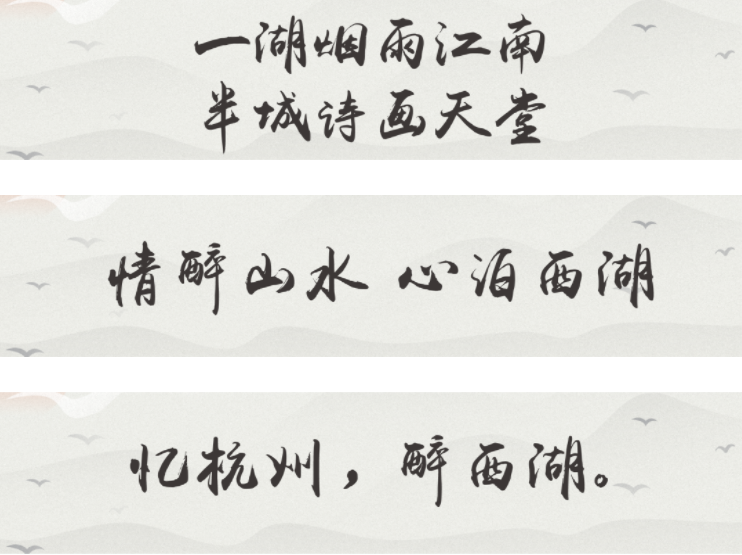 一湖烟雨江南
半城诗画天堂
情醉山水 心泊西湖
忆杭州，醉西湖。